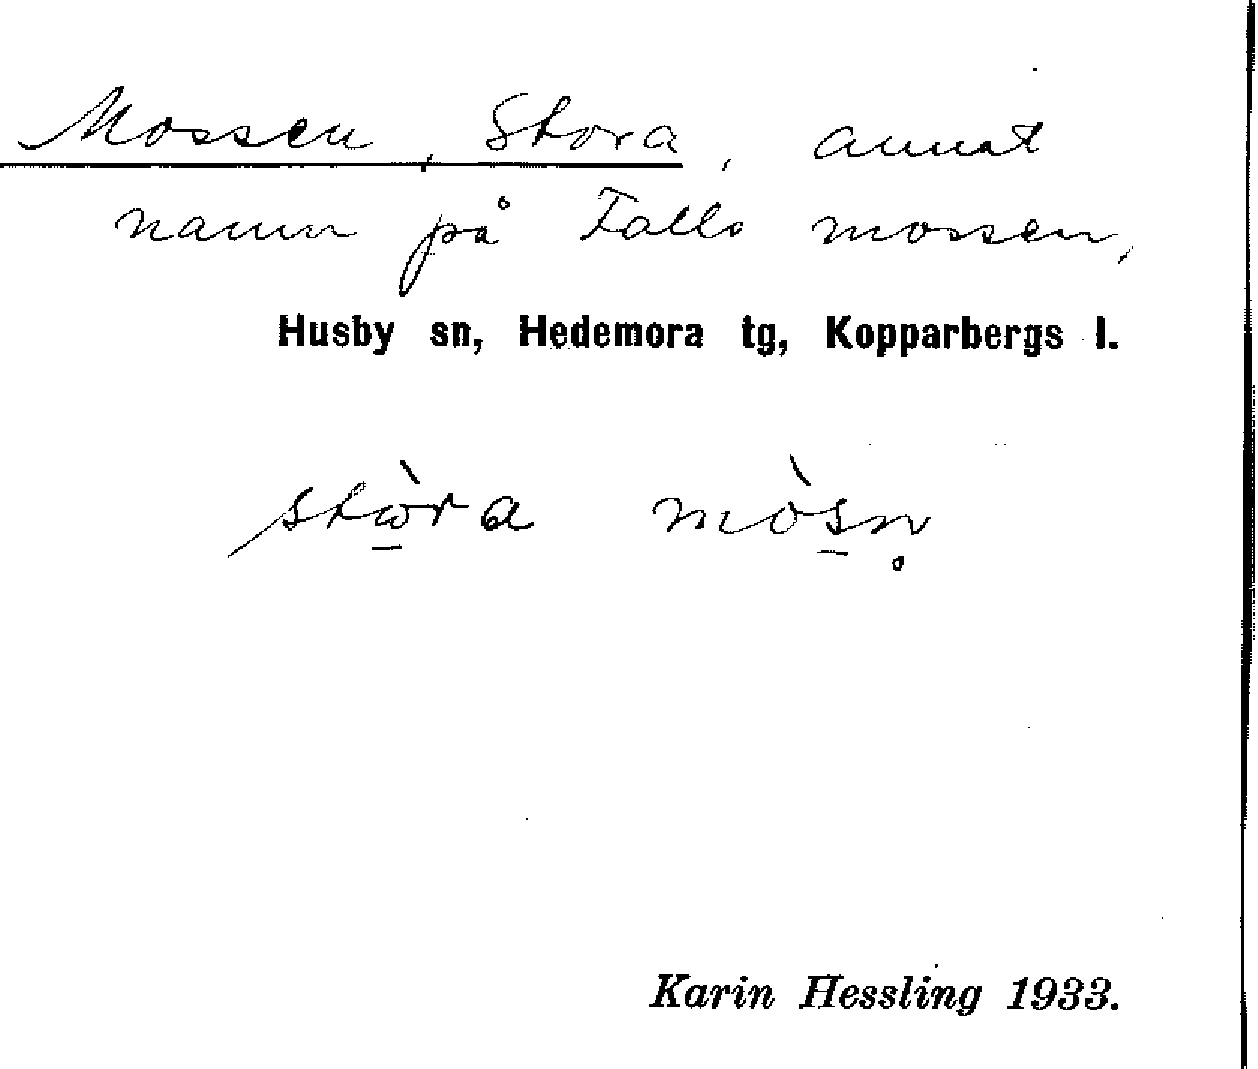 Mossen, Stora, annat
namn på Falls mossen,
Husby sn, Hedemora tg, Kopparbergs l.
stὼ̠ra mòs̠n̥
Karin Hessling 1933.